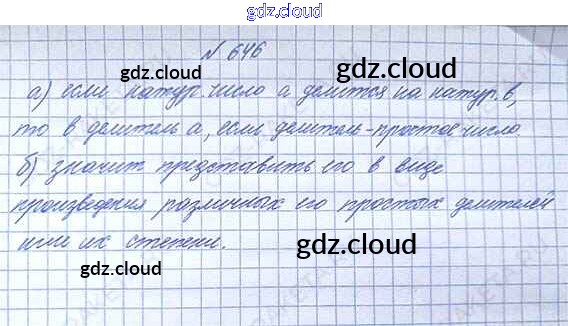 gdz.cloud
№ 646
а) если натур. число а делится на натур. в,
то в делитель а, если делитель - простое число.
б) значит представить его в виде
произведения различных его простых делителей
или их степени.
gdz.cloud
gdz.cloud
gdz.cloud
gdz.cloud
gdz.cloud